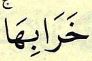 خَرَابِهَاۚ